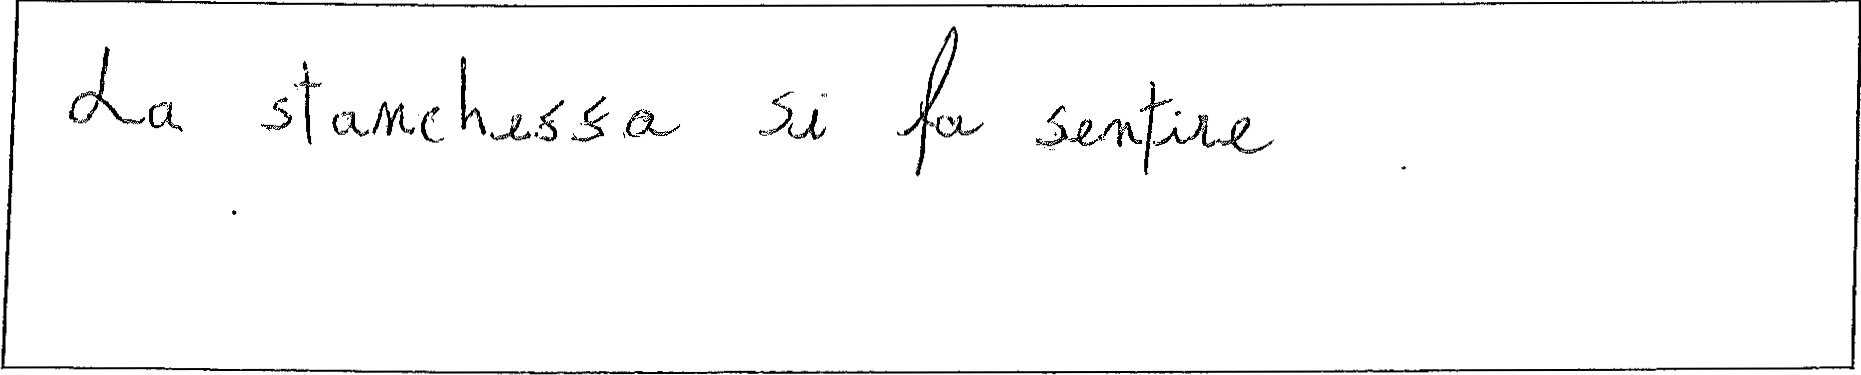 La stanchessa si fa sentire